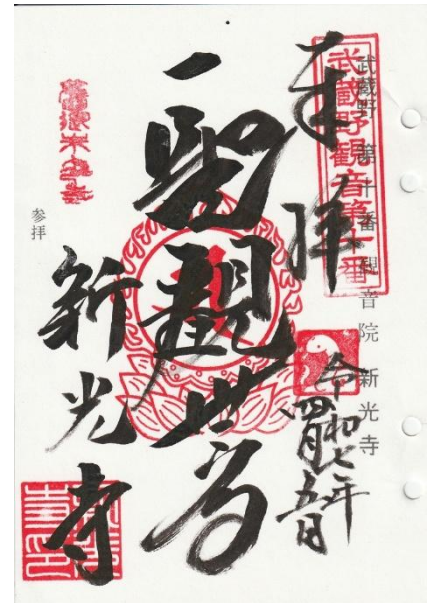 武蔵野観音第十番
武蔵野 第十番 観音院 新光寺
奉拝
令和七年
四月五日
聖觀世音
新光寺
参拝